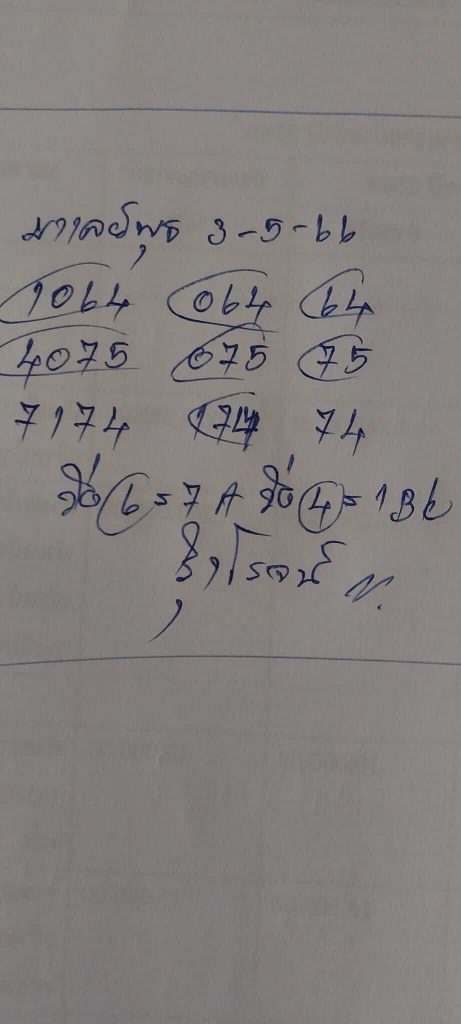 มาเลย์พุธ 3-5-66
1064 064 64
4075 075 75
7174 174 74
วิ่ง 6 = 7 A วิ่ง 4 = 1